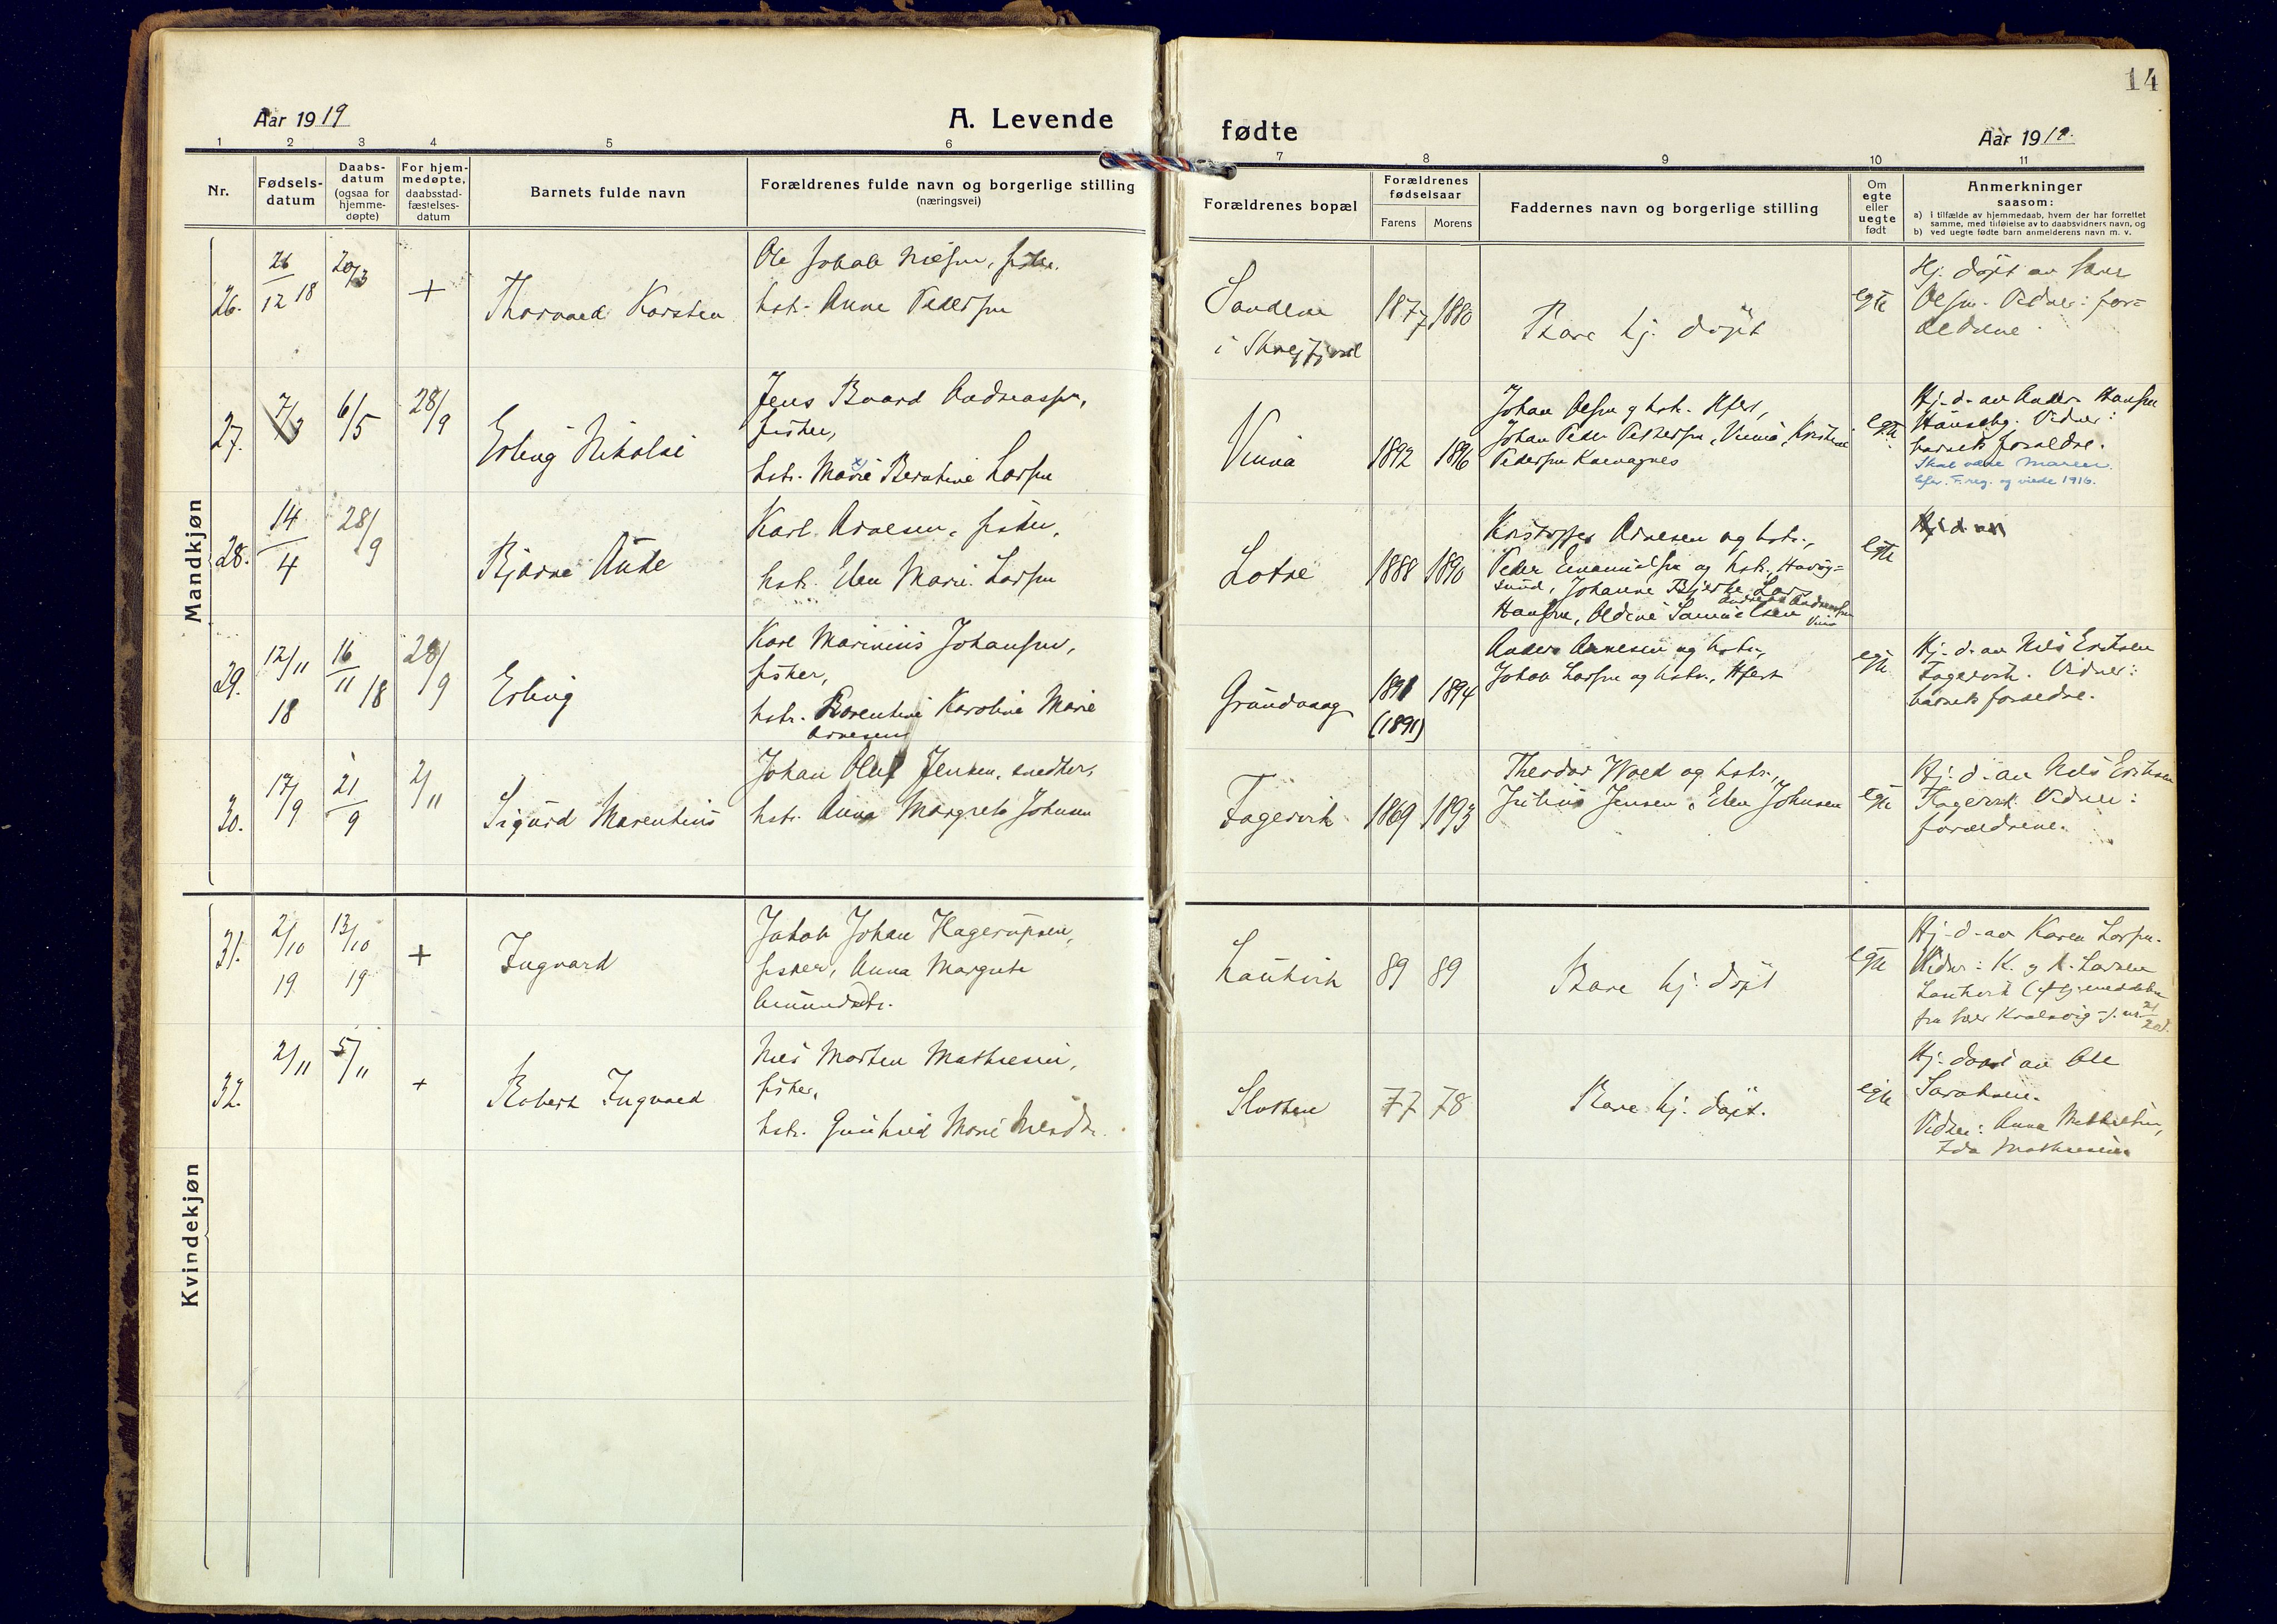 14
Aar 1919
A. Levende
fødte
Aar 1919.
1 2 3 4 5 6 7 8 9 10 11
Nr.
Fødsels-
datum
Daabs-
datum
(ogsaa for
hjemme-
døpte)
For hjem-
medøpte,
daabsstad-
fæstelses-
datum
Barnets fulde navn
Forældrenes fulde navn og borgerlige stilling
(næringsvei)
Forældrenes bopæl
Forældrenes
fødselsaar
Farens Morens
Faddernes navn og borgerlige stilling
Om
egte
eller
uegte
født
Anmerkninger
saasom:
a) i tilfælde av hjemmedaab, hvem der har forrettet
samme, med tilføielse av to daabsvidners navn, og
b) ved uegte fødte barn anmelderens navn m. v.
Mandkjøn
26.
26/12 18
20/3
+
Thorvald Karsten
Ole Jakob Nilsen, fisker.
hstr. Anne Pedersen
1877 1880
Bare hj. døpt
egte
Hj. døpt av
Olsen. Vidner: for-
ældrene
27.
7/3
6/5
28/9
Erling Nikolai
Jens Baard Andreassen,
fisker,
hstr. Marie x) Berntine Larsen
Vinna
1892 1896
Johan Olsen og hstr. Hfest,
Johan Peder Pedersen, Vinna, Kristine
Pedersen
egte
Hj. d. av Anders Hansen
Vidner:
barnets forældre.
Skal være Maren
efter F.reg. og viede 1916.
28.
14/4
28/9
Bjarne Aute
Karl Arnesen, fisker,
hstr. Elen Marie Larsen
Lotre
1888 1890
Kristoffer Arnesen og hstr.,
Peder Emanuelsen og hstr., Havøy-
sund, Johanne Bjerke, Lars
Andreas Andreassen
Hansen, Oldine Samuelsen Vinna
egte
Hj. d. av
29.
12/11 18
16/11 18
28/9
Erling
Karl Marinius Johansen,
fisker,
hstr. Berentine Karoline Marie
Arnesen
Grundvaag
1891 1894
(1891)
Anders Arnesen og hstr.,
Johan Larsen og hstr., Hfest
egte
Hj. d. av Nils Eriksen
Fagervik. Vidner:
barnets forældre.
30.
17/9
21/9
2/11
Sigurd Marentius
Johan Oluf Jensen, snedker,
hstr. Anna Margrete Johnsen
Fagervik
1869 1893
Theodor Wold og hstr.,
Julius Jensen, Elen Johnsen
egte
Hj. d. av Nils Eriksen
Fagervik. Vidner:
forældrene.
Kvindekjøn
31.
2/10 19
13/10 19
+
Ingvard
Jakob Johan Hagerupsen,
fisker, Anna Margrete
Amundsdtr.
Lautvik
89 89
Bare hj. døpt
egte
Hj. d. av Karen Larsen.
Vidner: K. og A. Larsen
Lautvik
32.
2/11
5/11
+
Robert Ingvald
Nils Morten Mathisen,
fisker,
hstr. Gunhild Marie Nilsdtr.
Slotten
77 78
Bare hj. døpt.
egte
Hj. døpt av Ole
Saraksen.
Vidner: Anna Mathisen,
Ida Mathisen.